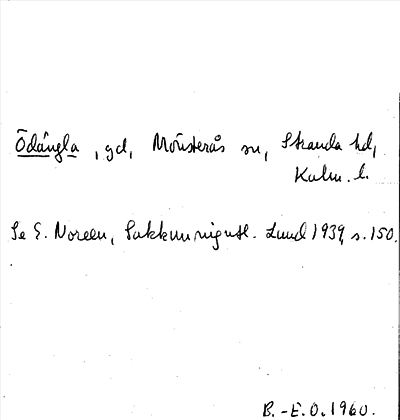 Ödängla, gd, Mönsterås sn, Stranda hd,
Kalm. l.
Se E. Noreen, Lund 1939, s. 150.
B.-E.O. 1960.